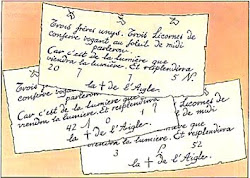 Trois frères unys. Trois Licornes de
conserve vogant au soleil de midi
parleront.
Car c'est de la lumière que
viendra la lumière. Et resplendira
20 7 7 5 N.
la ✝ de l'Aigle.
Trois frères
conserve
Car c'est de la lumière que
viendra la lumière. Et resplendira
42 0 1
la ✝ de l'Aigle.
Licornes de
midi
que
lumière. Et resplendira
3 52
la ✝ de l'Aigle.